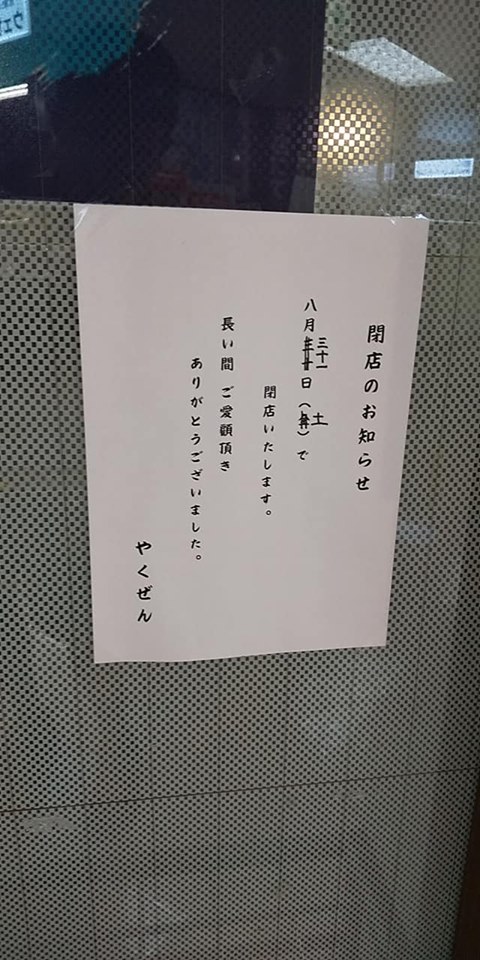 閉店のお知らせ
八月三十一日（土）で
閉店いたします。
長い間 ご愛顧頂き
ありがとうございました。
やくぜん